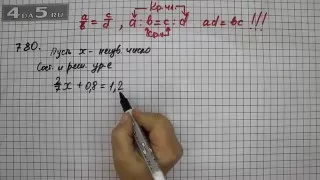 4DA5.RU
Кр.чл.
a/b = c/d, a : b = c : d ad = bc !!!
Ср.чл
780. Пусть x - неизв. число
Сост. и реш. ур-е
2/7 x + 0,8 = 1,2